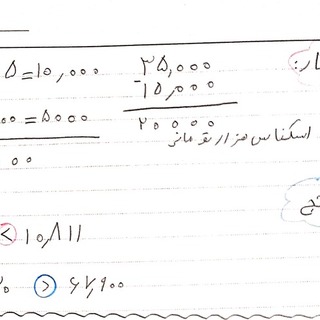 ۵=۱۰,۰۰۰ ۳۵,۰۰۰
-۱۵,۰۰۰
۰۰=۵۰۰۰ ۲۰۰۰۰
۰۰ اسکناس هزار تومانی
< ۱۰,۸۱۱
۲۰ < ۶۷,۹۰۰